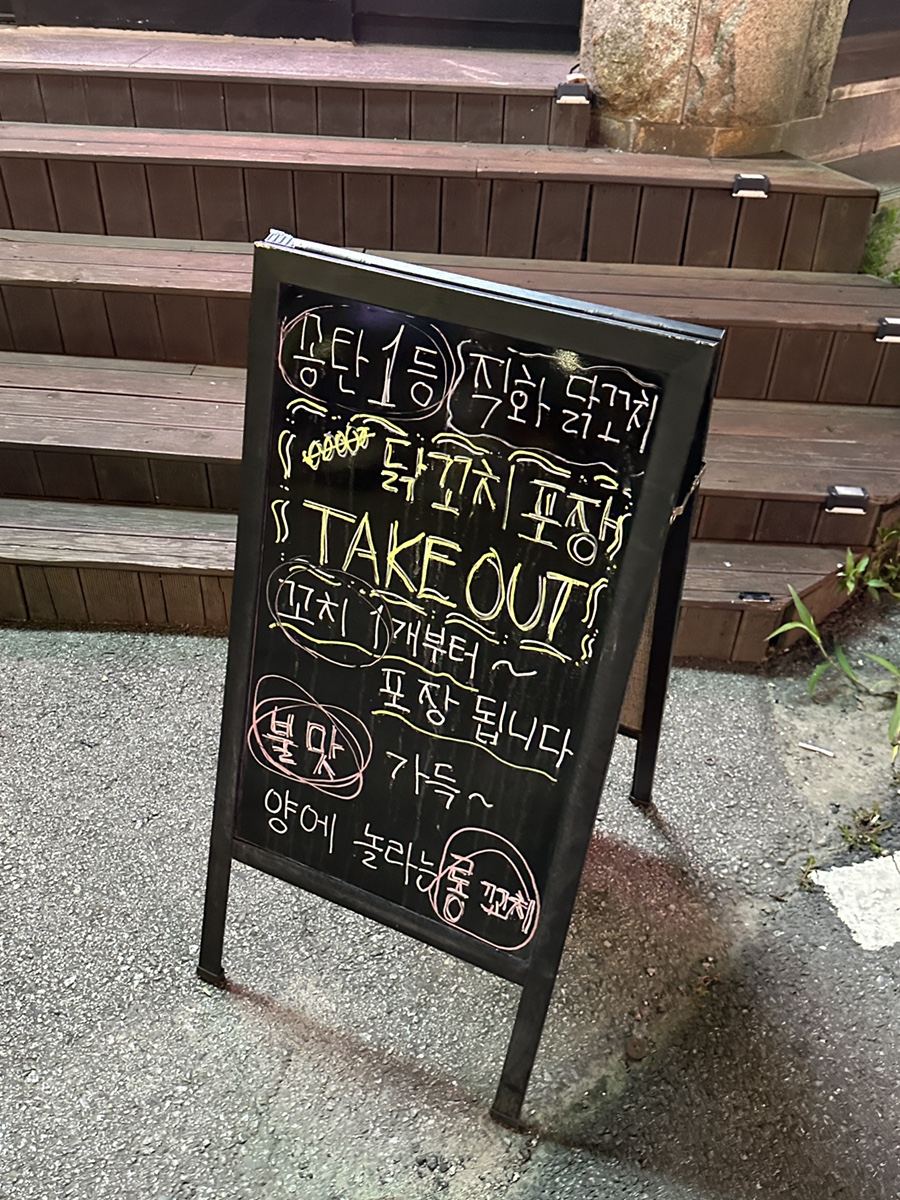 공탄 1등 직화 닭꼬치
닭꼬치 포장
TAKE OUT
꼬치 1개부터 ~
포장 됩니다
불맛 가득~
양에 놀라는 롱꼬치